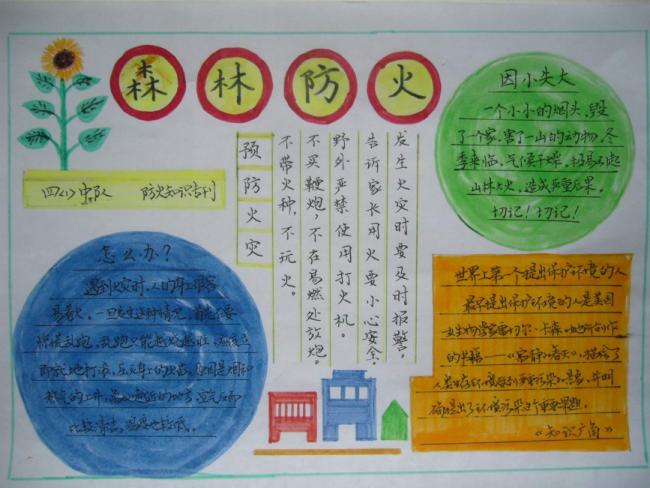 森林防火
四(1)中队 防火知识专刊
预防火灾
不带火种，不玩火。
不买鞭炮，不在易燃处放炮。
野外严禁使用打火机。
告诉家长用火要小心安全。
发生火灾时要及时报警。
因小失大
一个小小的烟头，毁
了一个家，害了一山的动物，冬
季来临，气候干燥，极易引起
山林大火，造成严重后果。
切记！切记！
怎么办？
遇到火灾时，人们身上很容
易着火，一旦发生这种情况，
惊慌乱跑，乱跑只能越烧越旺，
即就地打滚，
热气的上升，空气反而
比较清洁，温度也较低。
世界上第一个提出保护环境的人
最早提出保护环境的人是美国
女生物学家蕾切尔·卡森，她所创作
的书籍——《寂静的春天》，描绘了
人类由于环境污染
确提出了环境污染的重要课题。
《知识广角》